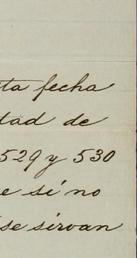 ta fecha
tad de
529 y 530
e sí no
se sirvan